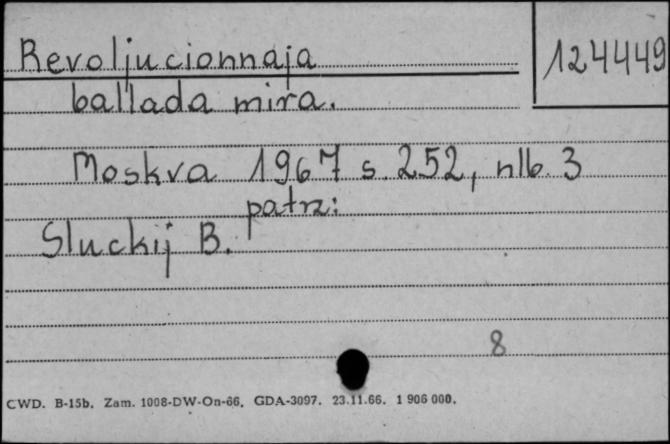 Revoljucionnaja
124449
ballada mira.
Moskva 1967 s. 252, nlb. 3
patrz:
Sluckij B.
8
CWD. B-15b. Zam. 1008-DW-On-66. GDA-3097. 23.11.66. 1 906 000.